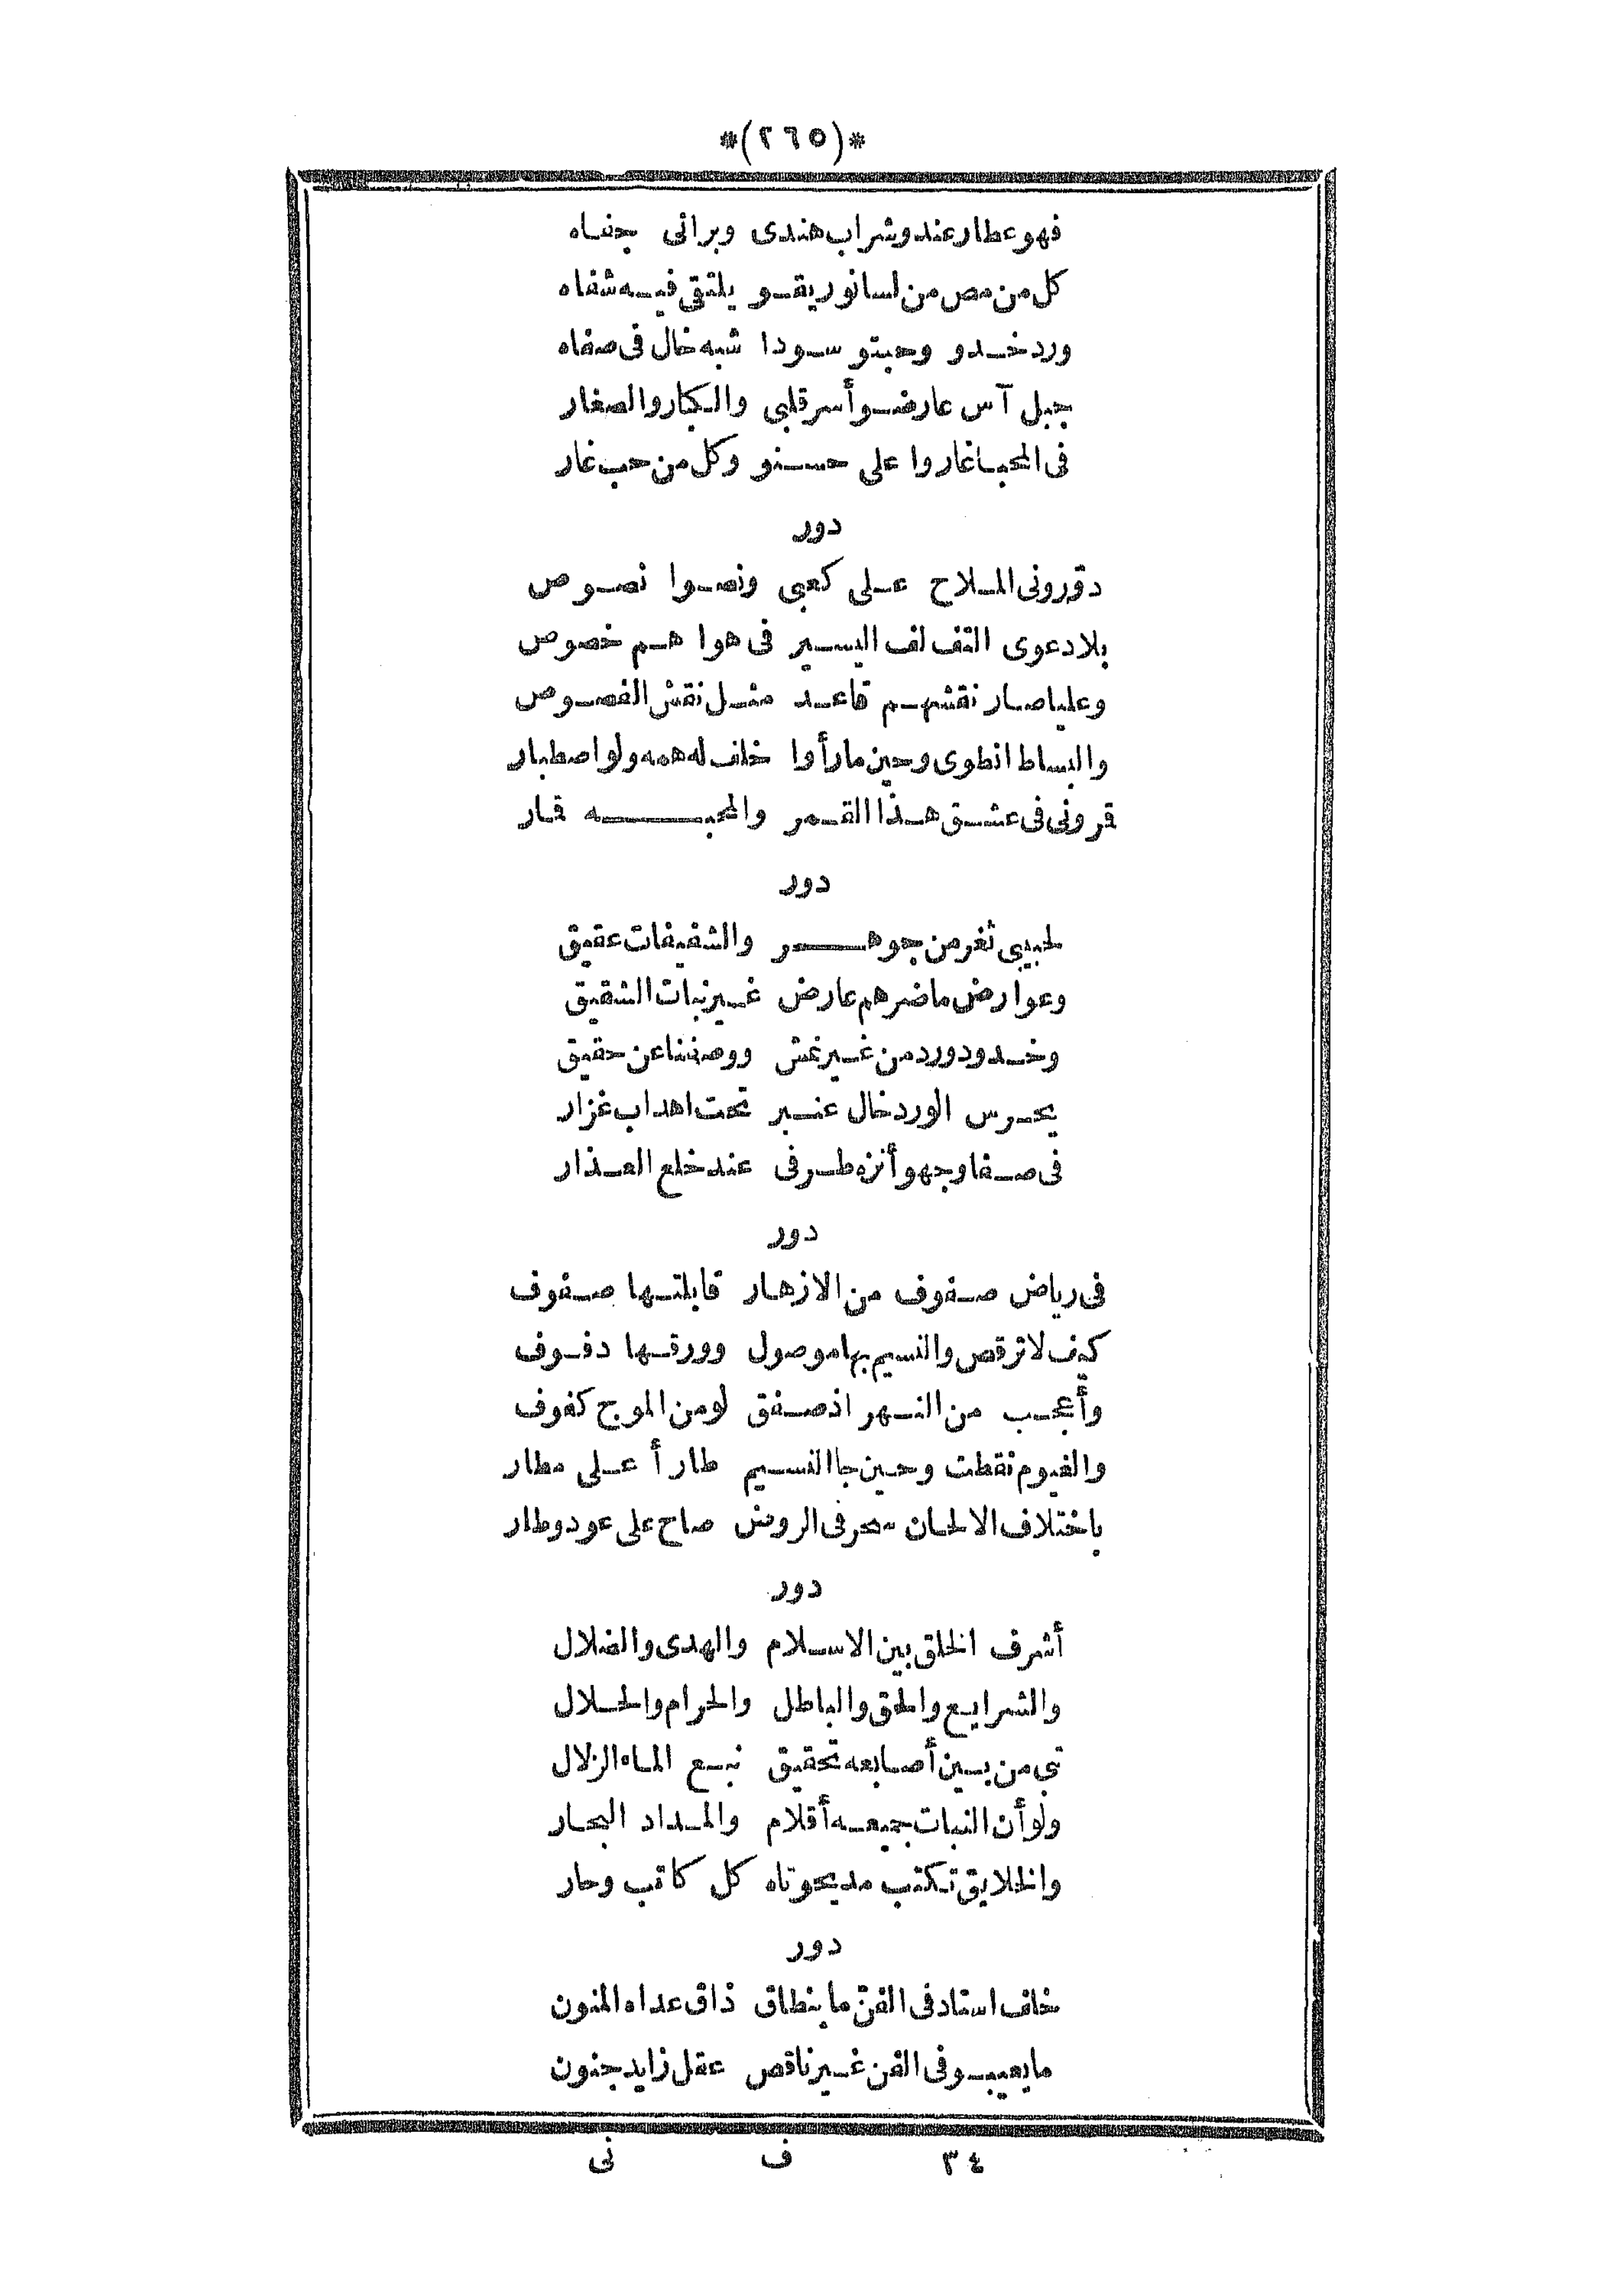 *(٢٦٥)*
فهو عطار عندو شراب هندى وبرائى جنناه
كل من مص من لسانو ريقو يلتقى فيه شفاه
ورد خدو وحبتو سودا شبه خال فى صفاه
جبل آس عارضو أسر قلبى والكبار والصغار
فى المحبا غاروا على حسنو وكل من حب غار
دور
دقرونى الملاح على كعبى ونصوا نصوص
بلا دعوى التف لف اليسير فى هواهم خصوص
وعليا صار نقشهم قاعد مثل نقش الفصوص
والبساط انطوى وحين مارأوا خلف له همه ولو اصطبار
قرونى فى عشق هذا القمر والمحبه قار
دور
لحبيبى ثغر من جوهر والشفيفات عقيق
وعوارض ماضرهم عارض غير نبات الشقيق
وخدود ورد من غير غش ووصفنا عن حقيق
يحرس الورد خال عنبر تحت اهداب غزار
فى صفا وجهو أنزه طرفى عند خلع العذار
دور
فى رياض صفوف من الازهار قابلتها صفوف
كيف لا ترقص والنسيم بها موصول وورقها دفوف
وأعجب من النهر اذ صفق لو من الموج كفوف
والغيوم نقطت وحين جا النسيم طار أعلى مطار
باختلاف الالحان سحر فى الروض صاح على عود وطار
دور
أشرف الخلق بين الاسلام والهدى والضلال
والشرايع والحق والباطل والحرام والحلال
نبى من بين أصابعه تحقيق نبع الماء الزلال
ولو أن النبات جميعه أقلام والمداد البحار
والخلايق تكتب مديحو تاه كل كاتب وحار
دور
خلف استاد فى الفن ما ينطاق ذاق عداه المنون
ما يعيبو فى الفن غير ناقص عقل زايد جنون
٣٤ ف نى